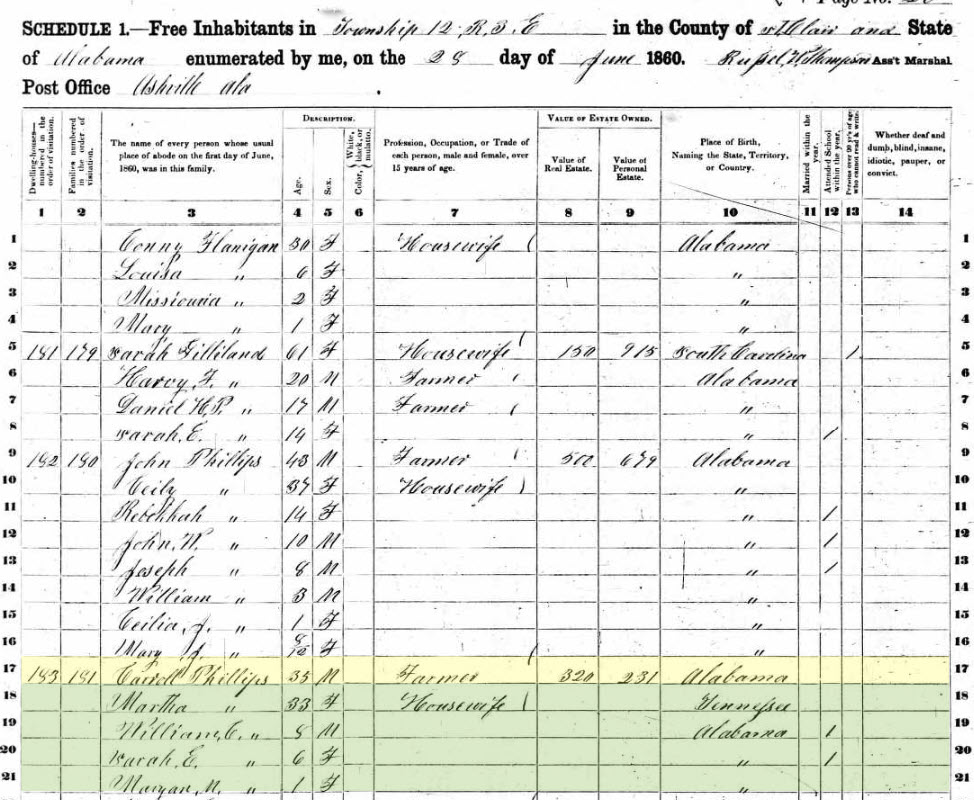 Page No.
SCHEDULE 1.—Free Inhabitants in Township 12, R. 3. E in the County of St Clair and State
of Alabama enumerated by me, on the 28 day of June 1860. Thompson Ass't Marshal.
Post Office Ashville Ala .
Dwelling-houses—numbered in the order of visitation.
Families numbered in the order of visitation.
The name of every person whose usual place of abode on the first day of June, 1860, was in this family.
DESCRIPTION.
Age.
Sex.
Color, { White, black, or mulatto.
Profession, Occupation, or Trade of each person, male and female, over 15 years of age.
VALUE OF ESTATE OWNED.
Value of Real Estate.
Value of Personal Estate.
Place of Birth, Naming the State, Territory, or Country.
Married within the year.
Attended School within the year.
Persons over 20 y'rs of age who cannot read & write.
Whether deaf and dumb, blind, insane, idiotic, pauper, or convict.
1 2 3 4 5 6 7 8 9 10 11 12 13 14
1 Flanigan 30 F Housewife Alabama 1
2 Louisa " 6 F " 2
3 Missouria " 2 F " 3
4 Mary " 1 F " 4
5 181 179 Sarah Gilliland 61 F Housewife 150 915 South Carolina 1 5
6 Harvy F. " 20 M Farmer Alabama 6
7 Daniel H.P. " 17 M Farmer " 7
8 Sarah, E. " 14 F " 1 8
9 182 180 John Phillips 43 M Farmer 500 679 Alabama 9
10 Ceily " 37 F Housewife " 10
11 Rebekhah " 14 F " 1 11
12 John, W. " 10 M " 1 12
13 Joseph " 8 M " 1 13
14 William " 3 M " 14
15 Ceilia, J. " 1 F " 15
16 Mary J " 8/12 F " 16
17 183 181 Carroll Phillips 35 M Farmer 320 231 Alabama 17
18 Martha " 33 F Housewife Tennessee 18
19 William, C. " 8 M Alabama 1 19
20 Sarah, E. " 6 F " 1 20
21 M. " 1 F " 21